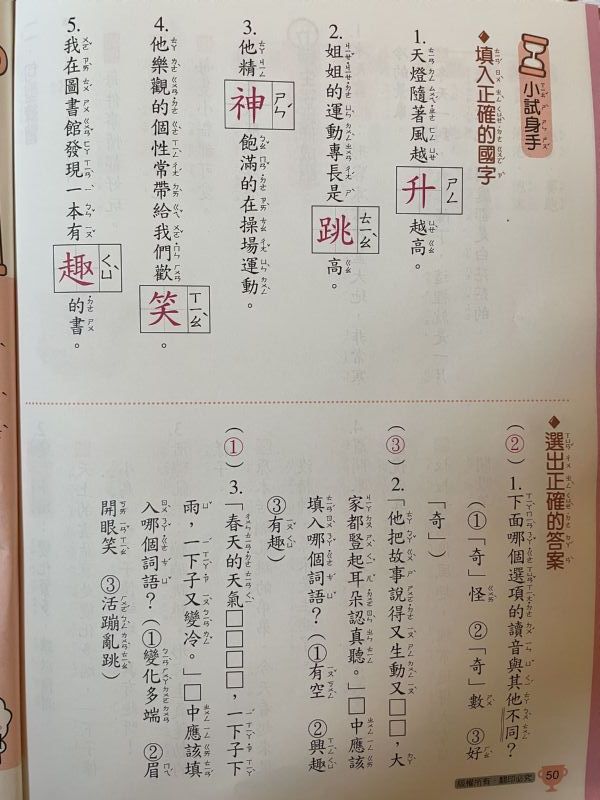 小試身手
◆填入正確的國字
1.天燈隨著風越升ㄕㄥ越高。
2.姐姐的運動專長是跳ㄊㄧㄠˋ高。
3.他精神ㄕㄣˊ飽滿的在操場運動。
4.他樂觀的個性常帶給我們歡笑ㄒㄧㄠˋ。
5.我在圖書館發現一本有趣ㄑㄩˋ的書。
◆選出正確的答案
(②)1.下面哪個選項的讀音與其他不同？
(①「奇」怪 ②「奇」數 ③好
「奇」)
(③)2.「他把故事說得又生動又□□，大
家都豎起耳朵認真聽。」□中應該
填入哪個詞語？(①有空 ②興趣
③有趣)
(①)3.「春天的天氣□□□□，一下子下
雨，一下子又變冷。」□中應該填
入哪個詞語？(①變化多端 ②眉
開眼笑 ③活蹦亂跳)
50
版權所有‧翻印必究